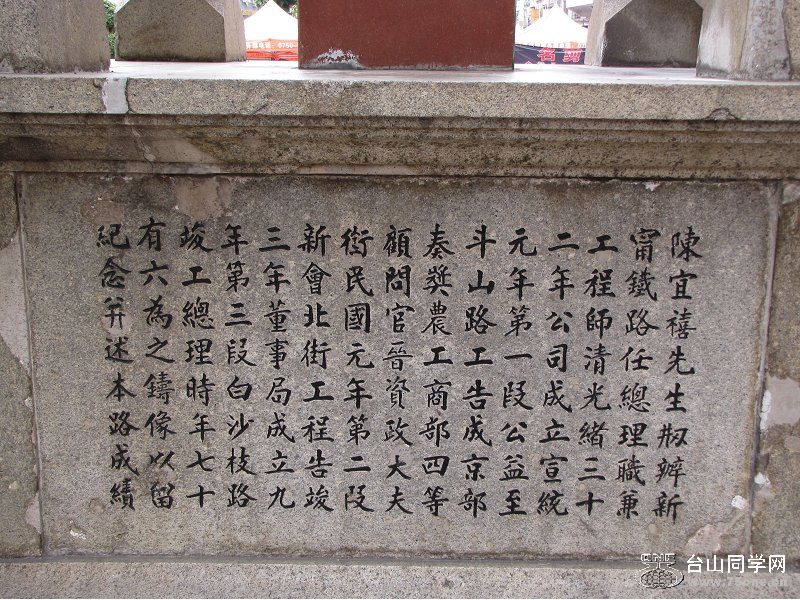 陳宜禧先生刱辦新
甯鐵路任總理職兼
工程師清光緒三十
二年公司成立宣統
元年第一段公益至
斗山路工告成京部
奏獎農工商部四等
顧問官晉資政大夫
銜民國元年第二段
新會北街工程告竣
三年董事局成立九
年第三段白沙枝路
竣工總理時年七十
有六為之鑄像以留
紀念并述本路成績
台山同学网
www.75one.cn